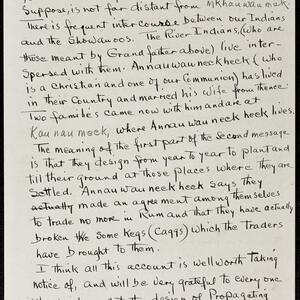 Suppose, is not far distant from Mkhauwaumek.
There is frequent intercourse between our Indians
and the Showanoos. The River Indians, (who are
those meant by Grandfather above) live inter-
spersed with them. Annauwauneekheek (who
is a christian and one of our Communion) has lived
in their Country and married his wife from thence.
Two families came now with him and are at
Kaunaumeek, where Annauwauneekheek lives.
The meaning of the first part of the second message
is that they design from year to year to plant and
till their ground at those places where they are
settled. Annauwauneekheek says they
actually made an agreement among themselves
to trade no more in Rum and that they have actually
broken the some Kegs (Caggs) which the Traders
have brought to them.
I think all this account is well worth taking
notice of, and will be very grateful to every one
design of Propagating